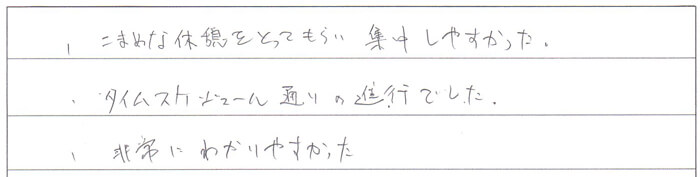 、こまめな休憩をとってもらい集中しやすかった。
・タイムスケジュール通りの進行でした。
、非常にわかりやすかった